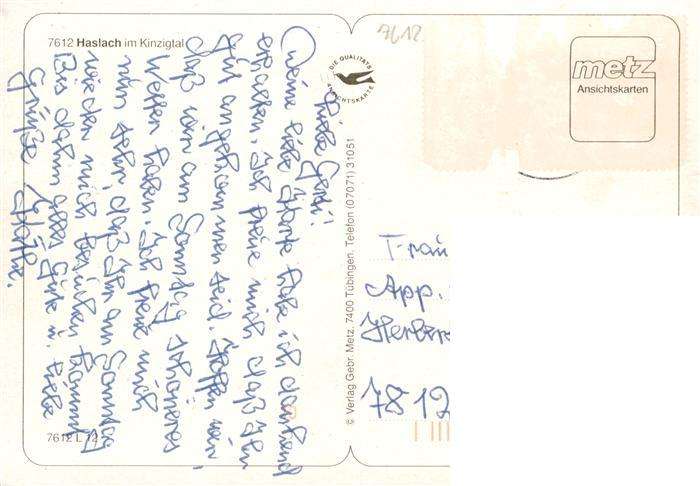 7612 Haslach im Kinzigtal
7612
DIE QUALITÄTS
ANSICHTSKARTE
metz
Ansichtskarten
Liebe Gerti!
Deine liebe Karte habe ich dankend
erhalten. Ich freue mich daß Ihr
gut angekommen seid. Hoffen wir
daß wir am Sonntag schöneres
Wetter haben. Ich freue mich
nun sehr, daß Ihr am Sonntag
wieder mich besuchen kommt
Bis dahin alles Gute u. liebe
Grüße
© Verlag Gebr. Metz, 7400 Tübingen, Telefon (07071) 31051
App.
7812
7612 L 12